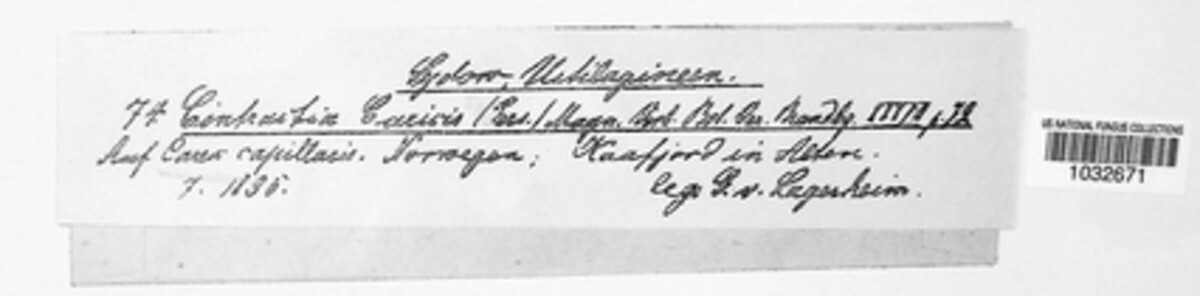 Sydow, Ustilagineen.
74 Cintractia Caricis (Pers.) Magn. Abh. Bot. Ver. Brandbg. p. 79
Auf Carex capillaris. Norwegen; Kaafjord in Alten.
7. 1895. leg. G. v. Lagerheim.
US NATIONAL FUNGUS COLLECTIONS
1032671